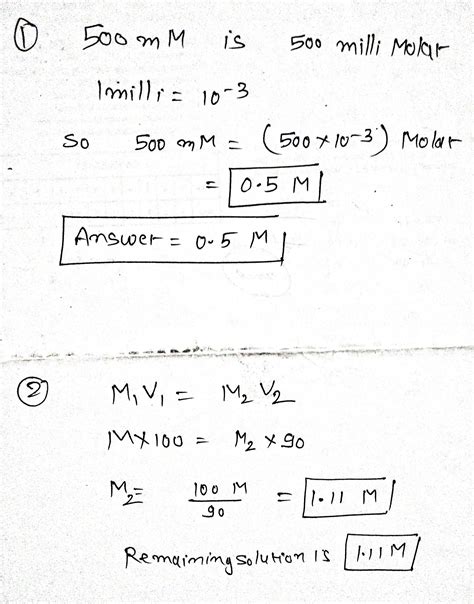 ① 500 mM is 500 milli Molar
1milli = 10-3
So 500 mM = (500×10-3) Molar
= 0.5 M
Answer = 0.5 M
② M₁V₁ = M₂V₂
1M×100 = M₂ × 90
M₂= 100 M / 90 = 1.11 M
Remaining solution is 1.11 M